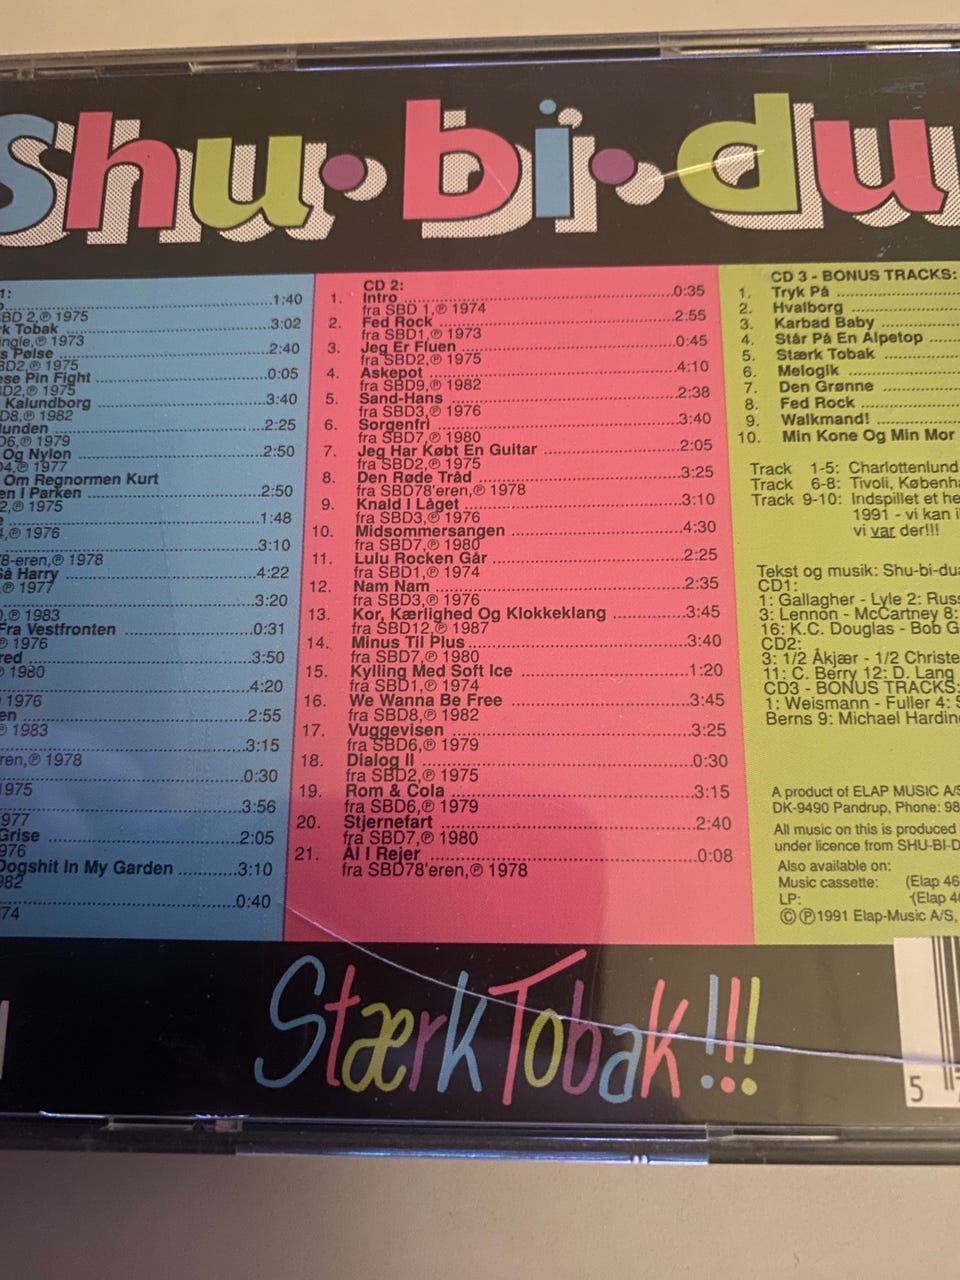 Shu·bi·du
1:
1:40
SBD 2,℗ 1975
rk Tobak 3:02
ingle,℗ 1973
s Pølse 2:40
BD2,℗ 1975
ese Pin Fight 0:05
BD2,℗ 1975
Kalundborg 3:40
BD8,℗ 1982
lunden 2:25
D6,℗ 1979
Og Nylon 2:50
04,℗ 1977
Om Regnormen Kurt
en I Parken 2:50
2,℗ 1975
1:48
4,℗ 1976
3:10
78-eren,℗ 1978
Så Harry 4:22
℗ 1977
3:20
℗ 1983
Fra Vestfronten 0:31
℗ 1976
red 3:50
℗ 1980
4:20
1976
en 2:55
℗ 1983
3:15
eren,℗ 1978
0:30
1975
3:56
977
Grise 2:05
976
Dogshit In My Garden 3:10
982
0:40
74
CD 2:
1. Intro 0:35
fra SBD 1,℗ 1974
2. Fed Rock 2:55
fra SBD1,℗ 1973
3. Jeg Er Fluen 0:45
fra SBD2,℗ 1975
4. Askepot 4:10
fra SBD9,℗ 1982
5. Sand-Hans 2:38
fra SBD3,℗ 1976
6. Sorgenfri 3:40
fra SBD7,℗ 1980
7. Jeg Har Købt En Guitar 2:05
fra SBD2,℗ 1975
8. Den Røde Tråd 3:25
fra SBD78'eren,℗ 1978
9. Knald I Låget 3:10
fra SBD3,℗ 1976
10. Midsommersangen 4:30
fra SBD7,℗ 1980
11. Lulu Rocken Går 2:25
fra SBD1,℗ 1974
12. Nam Nam 2:35
fra SBD3,℗ 1976
13. Kor, Kærlighed Og Klokkeklang 3:45
fra SBD12,℗ 1987
14. Minus Til Plus 3:40
fra SBD7,℗ 1980
15. Kylling Med Soft Ice 1:20
fra SBD1,℗ 1974
16. We Wanna Be Free 3:45
fra SBD8,℗ 1982
17. Vuggevisen 3:25
fra SBD6,℗ 1979
18. Dialog II 0:30
fra SBD2,℗ 1975
19. Rom & Cola 3:15
fra SBD6,℗ 1979
20. Stjernefart 2:40
fra SBD7,℗ 1980
21. Ål I Rejer 0:08
fra SBD78'eren,℗ 1978
CD 3 - BONUS TRACKS:
1. Tryk På
2. Hvalborg
3. Karbad Baby
4. Står På En Alpetop
5. Stærk Tobak
6. Melogik
7. Den Grønne
8. Fed Rock
9. Walkmand!
10. Min Kone Og Min Mor
Track 1-5: Charlottenlund
Track 6-8: Tivoli, Københa
Track 9-10: Indspillet et he
1991 - vi kan i
vi var der!!!
Tekst og musik: Shu-bi-dua
CD1:
1: Gallagher - Lyle 2: Russ
3: Lennon - McCartney 8:
16: K.C. Douglas - Bob G
CD2:
3: 1/2 Åkjær - 1/2 Christe
11: C. Berry 12: D. Lang
CD3 - BONUS TRACKS:
1: Weismann - Fuller 4: S
Berns 9: Michael Hardin
A product of ELAP MUSIC A/S
DK-9490 Pandrup, Phone: 98
All music on this is produced
under licence from SHU-BI-D
Also available on:
Music cassette: (Elap 46
LP: (Elap 46
©℗1991 Elap-Music A/S,
Stærk Tobak!!!
5